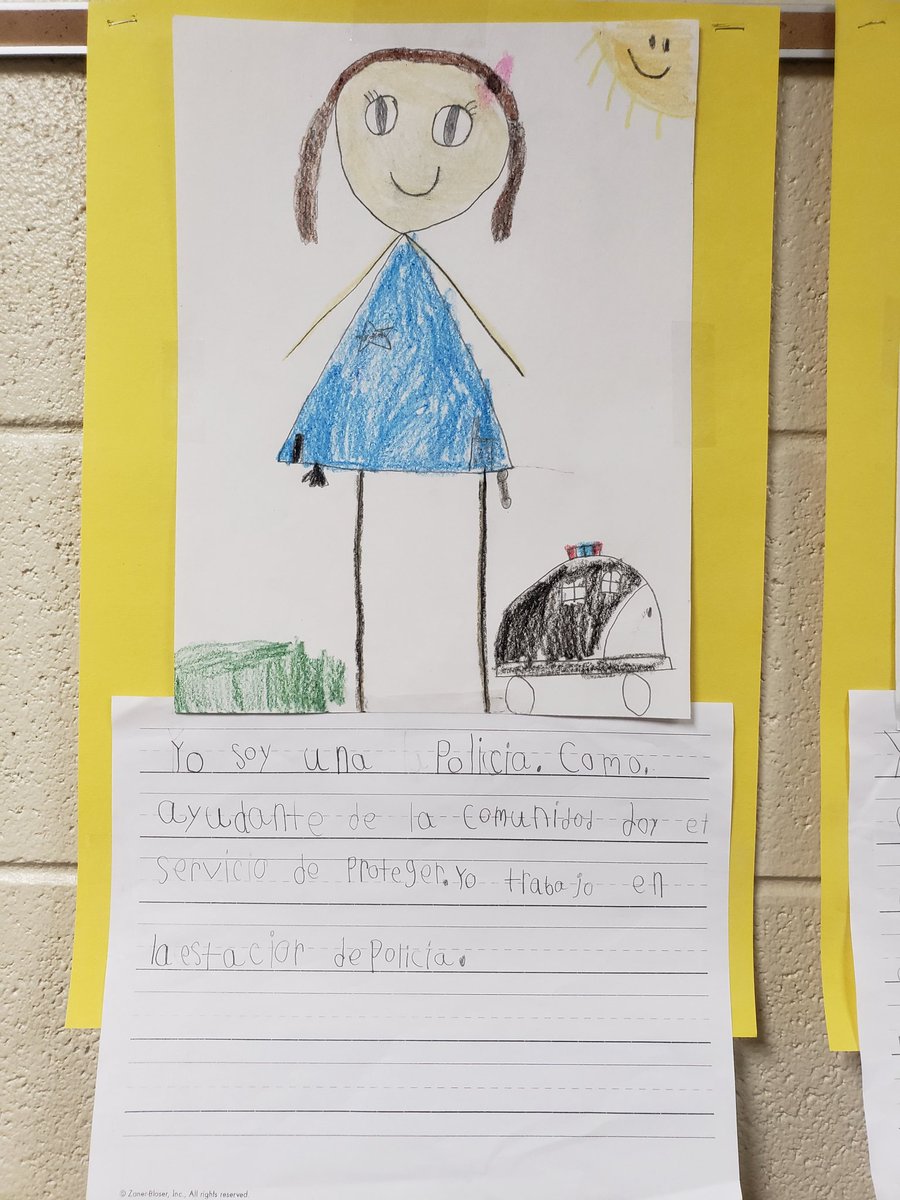 Yo soy una Policía. Como.
ayudante de la comunidad doy el
servicio de Proteger. Yo trabajo en
la estacion de Policía.
© Zaner-Bloser, Inc., All rights reserved.